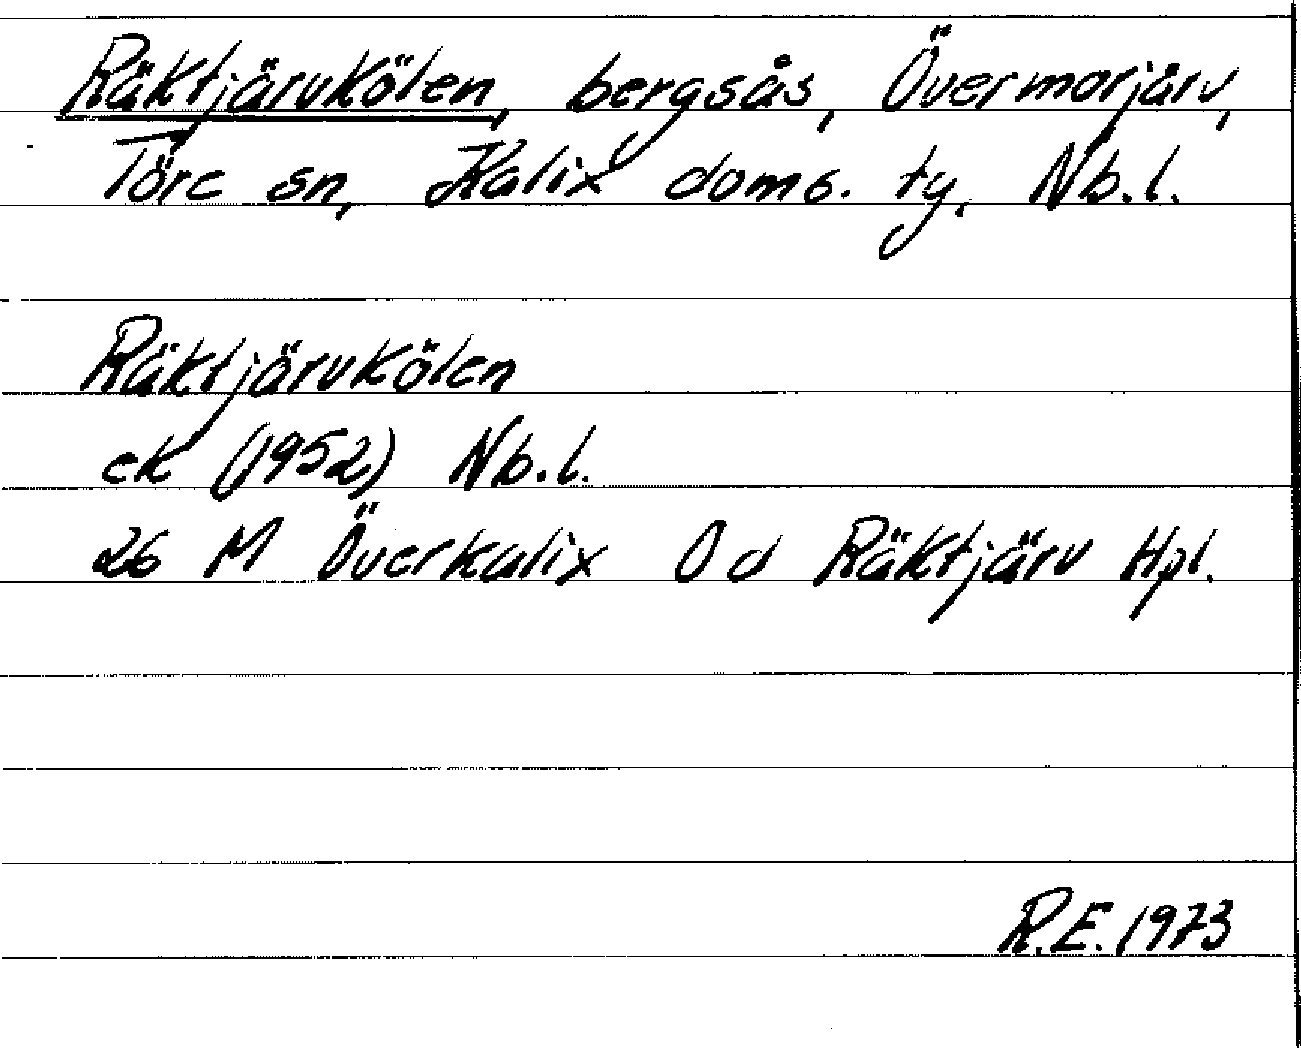 Räktjärvkölen, bergsås, Övermorjärv,
Töre sn, Kalix doms. ty, Nb.l.
Räktjärvkölen
ek (1952) Nb.l.
26 M Överkalix 0 d Räktjärv Hpl.
R.E. 1973